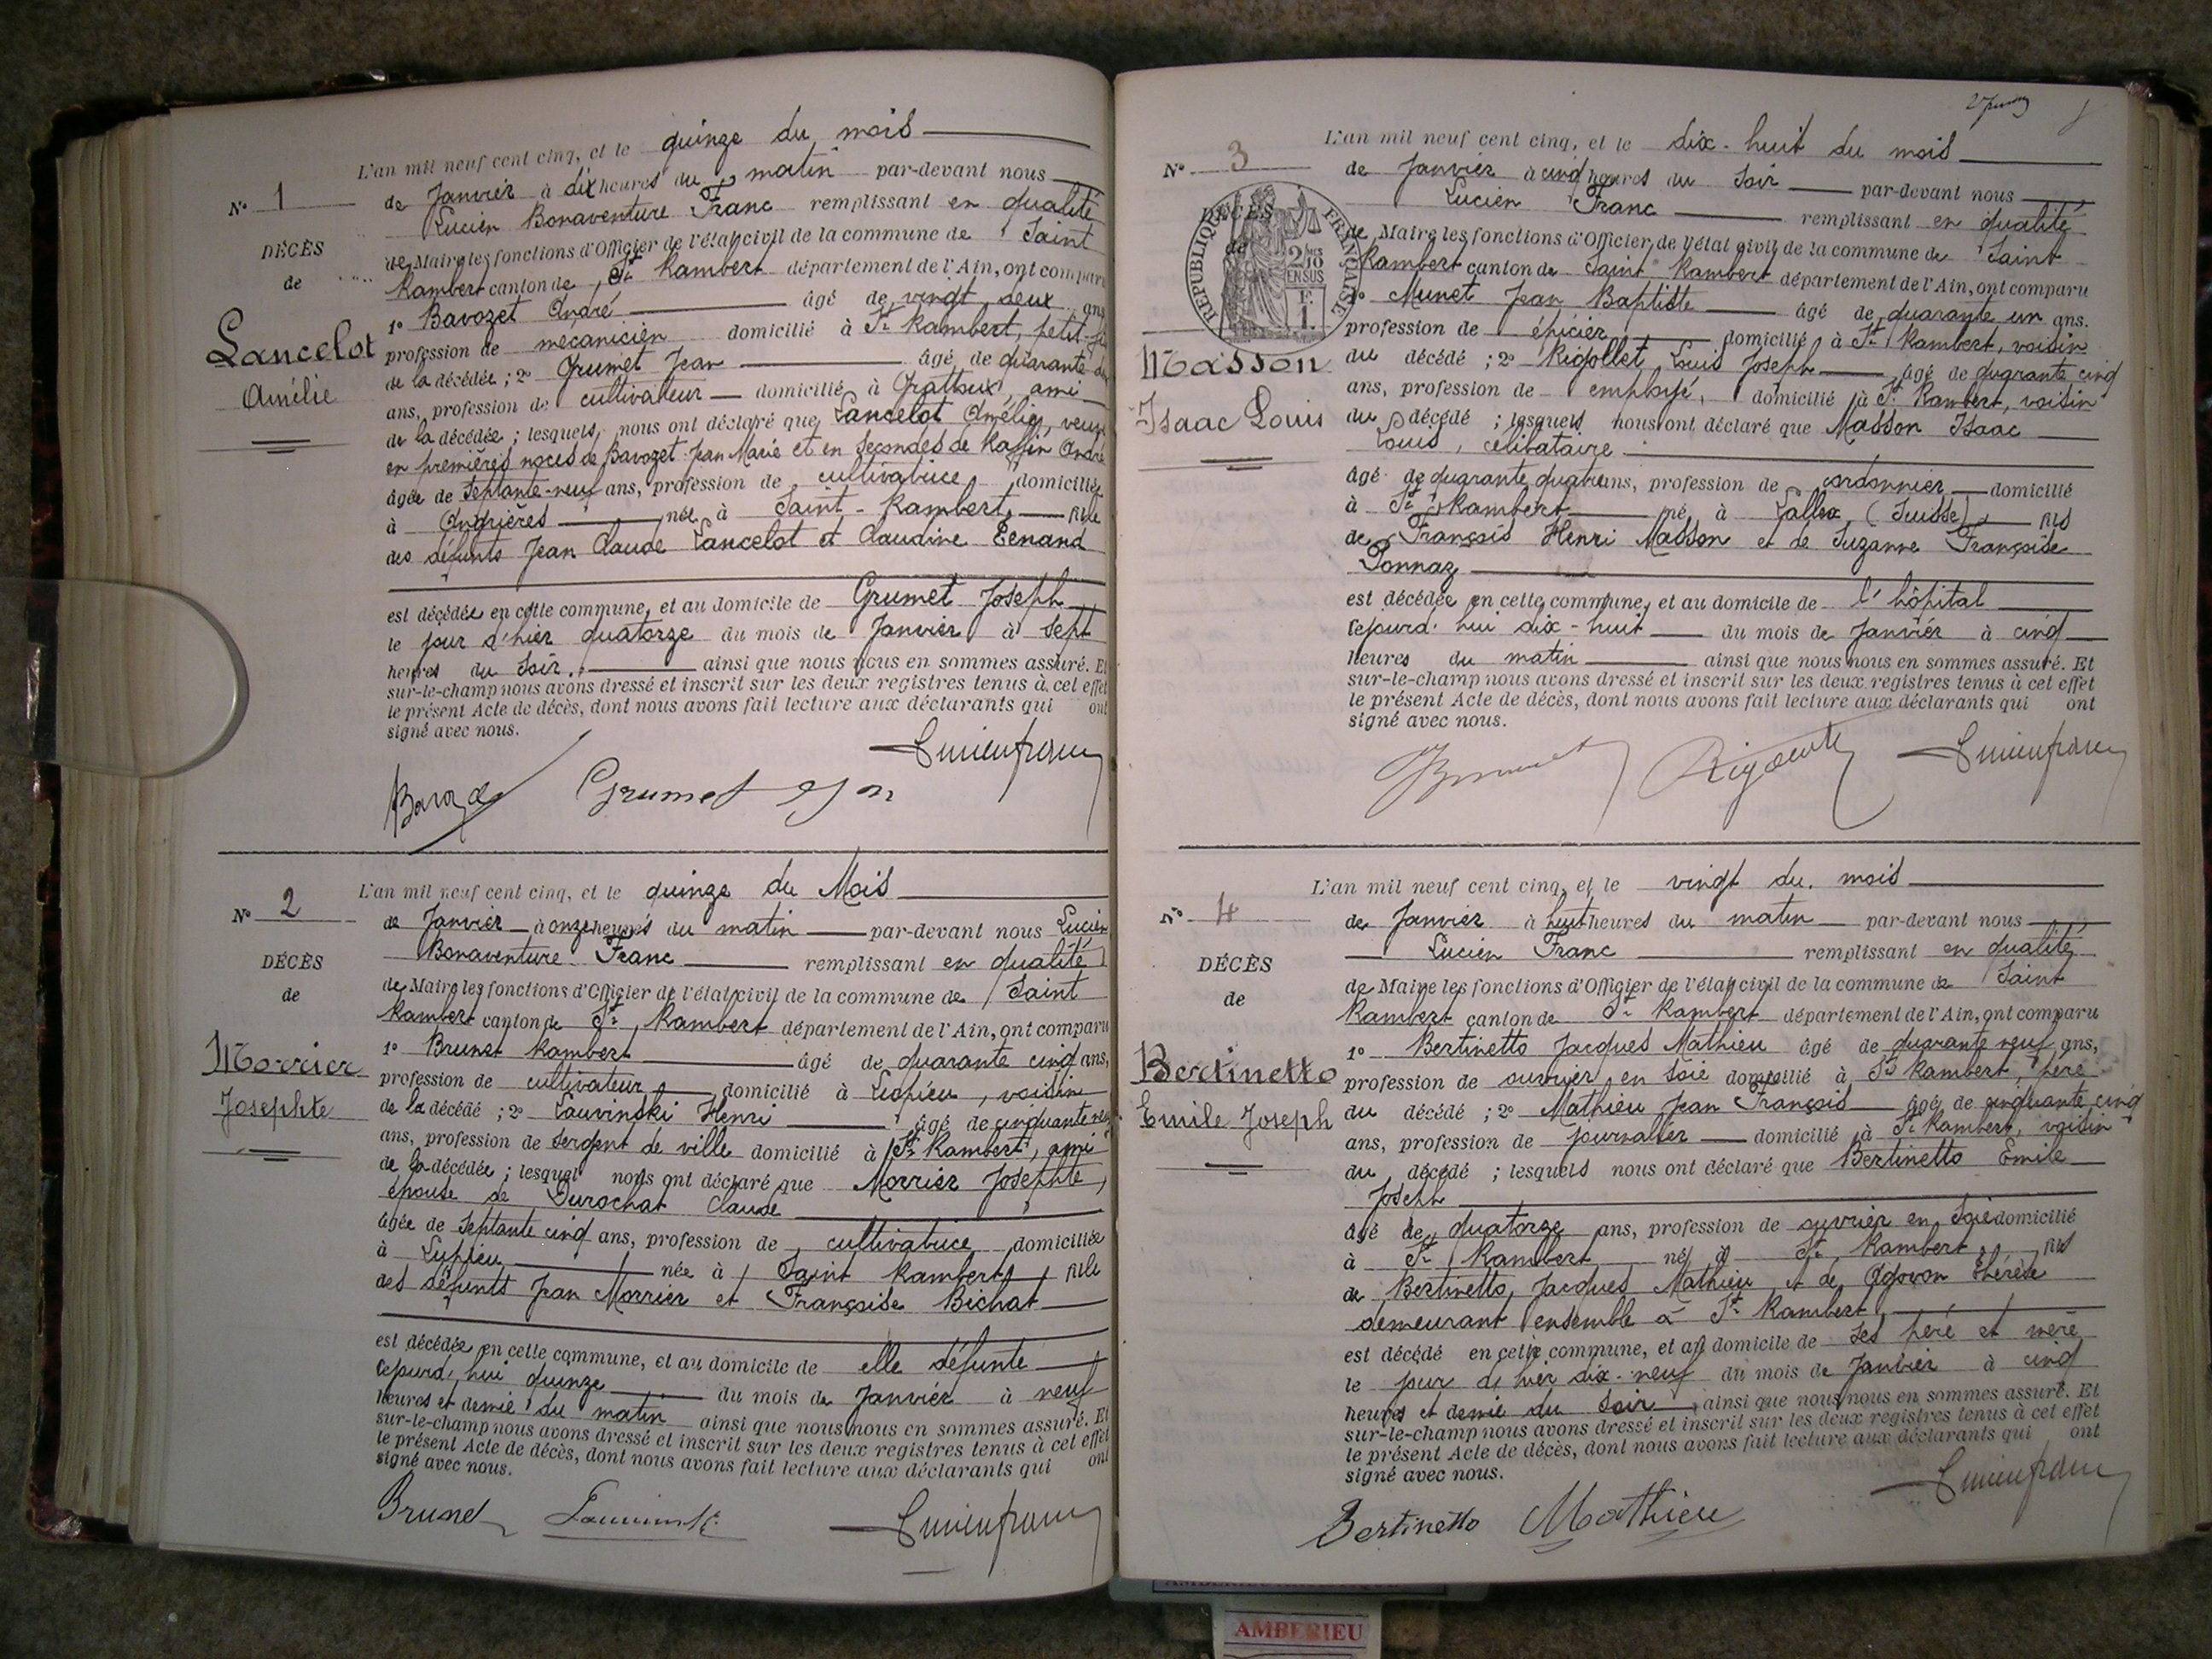 L'an mil neuf cent cinq, et le quinze du mois
N° 1
de Janvier à dix heures du matin par-devant nous
Lucien Bonaventure Franc remplissant en qualité
DÉCÈS
de Maire les fonctions d'Officier de l'état civil de la commune de Saint
de
Rambert canton de St Rambert département de l'Ain, ont comparu
1° Bavozet André âgé de vingt deux ans
Lancelot
profession de mécanicien domicilié à St Rambert, petit-fils
Amélie
de la décédée ; 2° Grumet Jean âgé de quarante
ans, profession de cultivateur domicilié à Grattoux, ami
de la décédée ; lesquels nous ont déclaré que Lancelot Amélie, veuve
en premières noces de Bavozet Jean Marie et en secondes de André
âgée de septante-neuf ans, profession de cultivatrice domiciliée
à Angrières née à Saint-Rambert, fille
des défunts Jean Claude Lancelot et Claudine Tenand
est décédée en cette commune, et au domicile de Grumet Joseph
le jour d'hier quatorze du mois de Janvier à sept
heures du soir. ainsi que nous nous en sommes assuré. Et
sur-le-champ nous avons dressé et inscrit sur les deux registres tenus à cet effet
le présent Acte de décès, dont nous avons fait lecture aux déclarants qui ont
signé avec nous.
Lucien franc
Grumet
L'an mil neuf cent cinq, et le quinze du Mois
N° 2
de Janvier à onze heures du matin par-devant nous Lucien
Bonaventure Franc remplissant en qualité
DÉCÈS
de Maire les fonctions d'Officier de l'état civil de la commune de Saint
de
Rambert canton de St Rambert département de l'Ain, ont comparu
1° Brunet Rambert âgé de quarante cinq ans,
Morrier
profession de cultivateur, domicilié à Lupieu, voisin
Josephte
de la décédé ; 2° Lauvinski Henri âgé de cinquante
ans, profession de sergent de ville domicilié à St Rambert, ami
de la décédée ; lesquel nous ont déclaré que Morrier Josephte,
épouse de Durochat Claude
âgée de septante cinq ans, profession de cultivatrice domiciliée
à Lupieu née à Saint Rambert, fille
des défunts Jean Morrier et Françoise Bichat
est décédée en cette commune, et au domicile de elle défunte
cejourd'hui quinze du mois de Janvier à neuf
heures et demie du matin ainsi que nous nous en sommes assuré. Et
sur-le-champ nous avons dressé et inscrit sur les deux registres tenus à cet effet
le présent Acte de décès, dont nous avons fait lecture aux déclarants qui ont
signé avec nous.
Brunet Lauvinski Lucien franc
L'an mil neuf cent cinq, et le dix-huit du mois
N° 3
de Janvier à cinq heures du soir par-devant nous
Lucien Franc remplissant en qualité
DÉCÈS
de
RÉPUBLIQUE FRANÇAISE
2/10 EN SUS
F. 1.
de Maire les fonctions d'Officier de l'état civil de la commune de Saint
Rambert canton de Saint Rambert département de l'Ain, ont comparu
1° Munet Jean Baptiste âgé de quarante un ans.
profession de épicier domicilié à St Rambert, voisin
Masson
du décédé ; 2° Rigollet Louis Joseph âgé de quarante cinq
Isaac Louis
ans, profession de employé, domicilié à St Rambert, voisin
du décédé ; lesquels nous ont déclaré que Masson Isaac
Louis, célibataire
âgé de quarante quatre ans, profession de cordonnier domicilié
à St Rambert né à (Suisse) fils
de François Henri Masson et de Suzanne Françoise
Ponnaz
est décédée en cette commune, et au domicile de l'hôpital
cejourd'hui dix-huit du mois de Janvier à cinq
heures du matin ainsi que nous nous en sommes assuré. Et
sur-le-champ nous avons dressé et inscrit sur les deux registres tenus à cet effet
le présent Acte de décès, dont nous avons fait lecture aux déclarants qui ont
signé avec nous.
Lucien franc
L'an mil neuf cent cinq, et le vingt du mois
N° 4
de Janvier à huit heures du matin par-devant nous
Lucien Franc remplissant en qualité
DÉCÈS
de Maire les fonctions d'Officier de l'état civil de la commune de Saint
de
Rambert canton de St Rambert département de l'Ain, ont comparu
1° Bertinetto Jacques Mathieu âgé de quarante neuf ans,
Bertinetto
profession de ouvrier en soie domicilié à St Rambert, père
Emile Joseph
du décédé ; 2° Mathieu Jean François âgé de cinquante cinq
ans, profession de journalier domicilié à St Rambert, voisin
du décédé ; lesquels nous ont déclaré que Bertinetto Emile
Joseph
âgé de quatorze ans, profession de ouvrier en soie domicilié
à St Rambert né à St Rambert, fils
de Bertinetto, Jacques Mathieu et de Thérèse
demeurant ensemble à St Rambert,
est décédé en cette commune, et au domicile de ses père et mère
le jour d'hier dix-neuf du mois de Janvier à cinq
heures et demie du soir ainsi que nous nous en sommes assuré. Et
sur-le-champ nous avons dressé et inscrit sur les deux registres tenus à cet effet
le présent Acte de décès, dont nous avons fait lecture aux déclarants qui ont
signé avec nous.
Bertinetto Mathieu Lucien franc
AMBERIEU